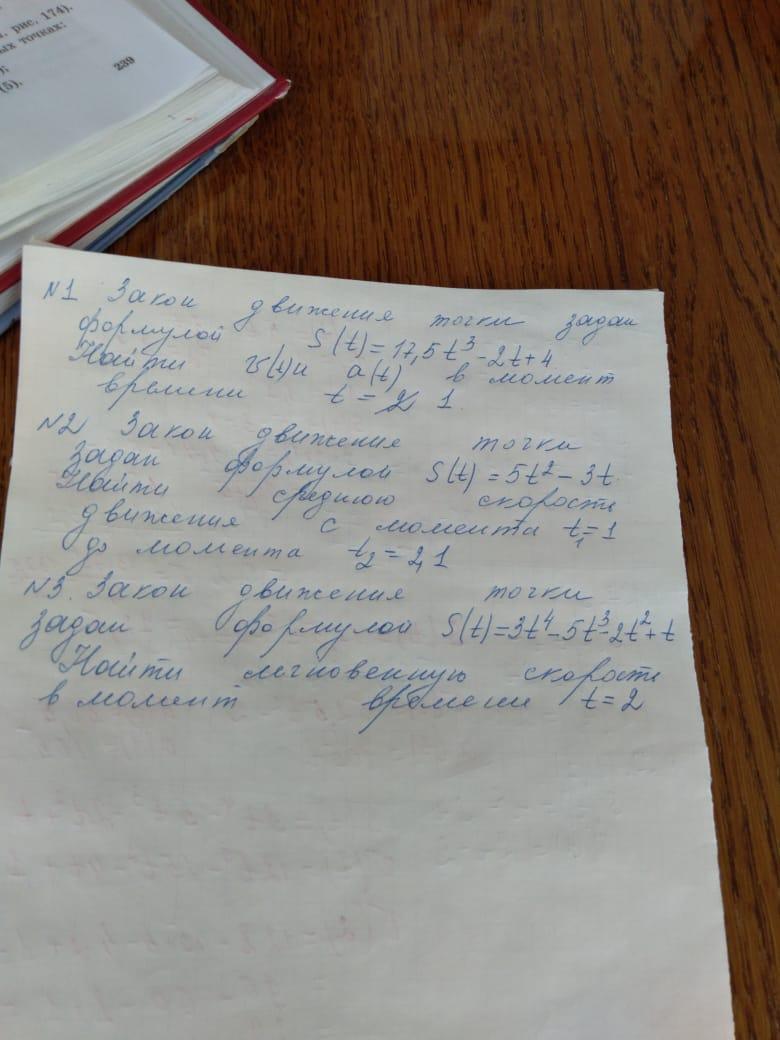 , рис. 174).
ых точках:
);
(5).
239
N1 Закон движения точки задан
формулой S(t)=17,5t³-2t+4
Найти v(t) и a(t) в момент
времени t = 1
N2 Закон движения точки
задан формулой S(t)=5t²-3t
Найти среднюю скорость
движения с момента t₁=1
до момента t₂=2,1
N3. Закон движения точки
задан формулой S(t)=3t⁴-5t³-2t²+t
Найти мгновенную скорость
в момент времени t=2